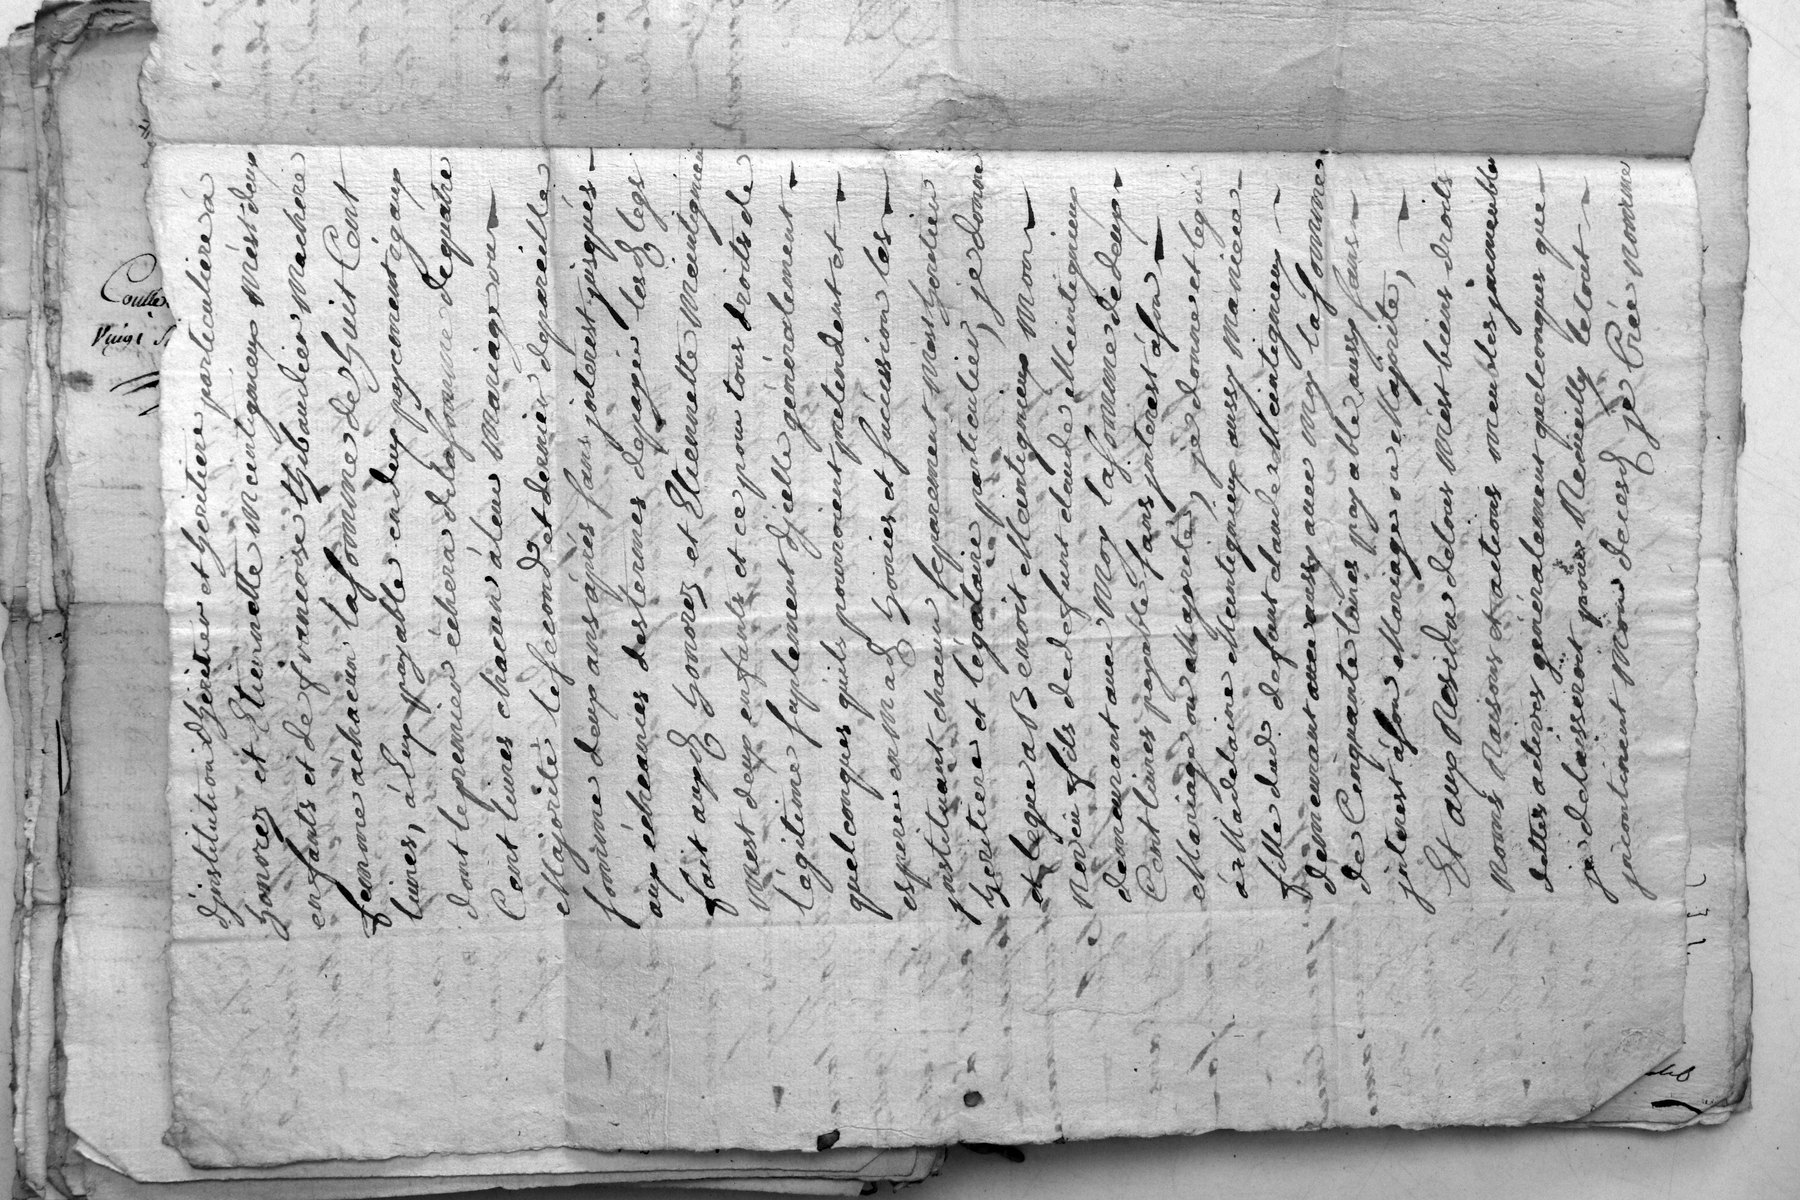 d'jnstitution d'héritier et héritiere particuliere à
honorez et Etiennette Meantignieux Mest deux
enfants et de francoise thibaudier Ma chere
femme a chacun la somme de huit Cent
livres, à Eux payable en deux payements égaux
dont le premier échera de la somme de quatre
Cent livres chacun à leur Mariage ou
Majorité le second et dernier de pareille
somme deux ans aprés sans jnterest jusqués
aux écheances des termes de payer lesd legs
fait auxd honorez et Etiennette Meantignieu
Mest deux enfants et ce pour tous droits de
légitime suplement d'jcelle généralement
quelconques quils pourroient pretendent et
esperer en Mad hoirie et succession les
jnstituant chacun separement Mes héritier
héritiere et légataire particulier, je donne
et legue a Benoit Maintignieux Mon
Neveu fils de defunt claude Maintignieux
demeurant avec Moy la somme de deux
Cent livres payable sans jnterest à son
Mariage ou Majorité, je donne et legue
à Madelaine Maintignieux aussy Ma niece
fille dud defunt claude Maintignieux
demeurant avec aussy avec Moy la somme
de Cinquante livres payable aussy sans
jnterest à son Mariage ou Majorité,
Et aux Residu de tous Mest biens droits
Noms Raisons et actions meubles jmmeubles
dettes actives généralement quelconques que
je delaisseront pour Recueilly le tout
jncontinent Mon decesd je Créé Nomme
Vingt